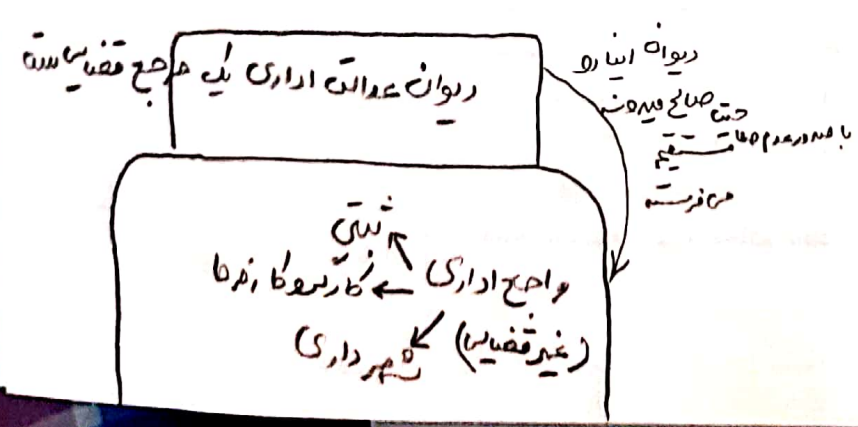 دیوان عدالت اداری یک مرجع قضایی ست
دیوان اینارو
صالح میدونه
با صدور عدم صلاحیت مستقیم
می فرسته
ثبتی
مراجع اداری کارگر و کارفرما
(غیرقضایی) شهرداری